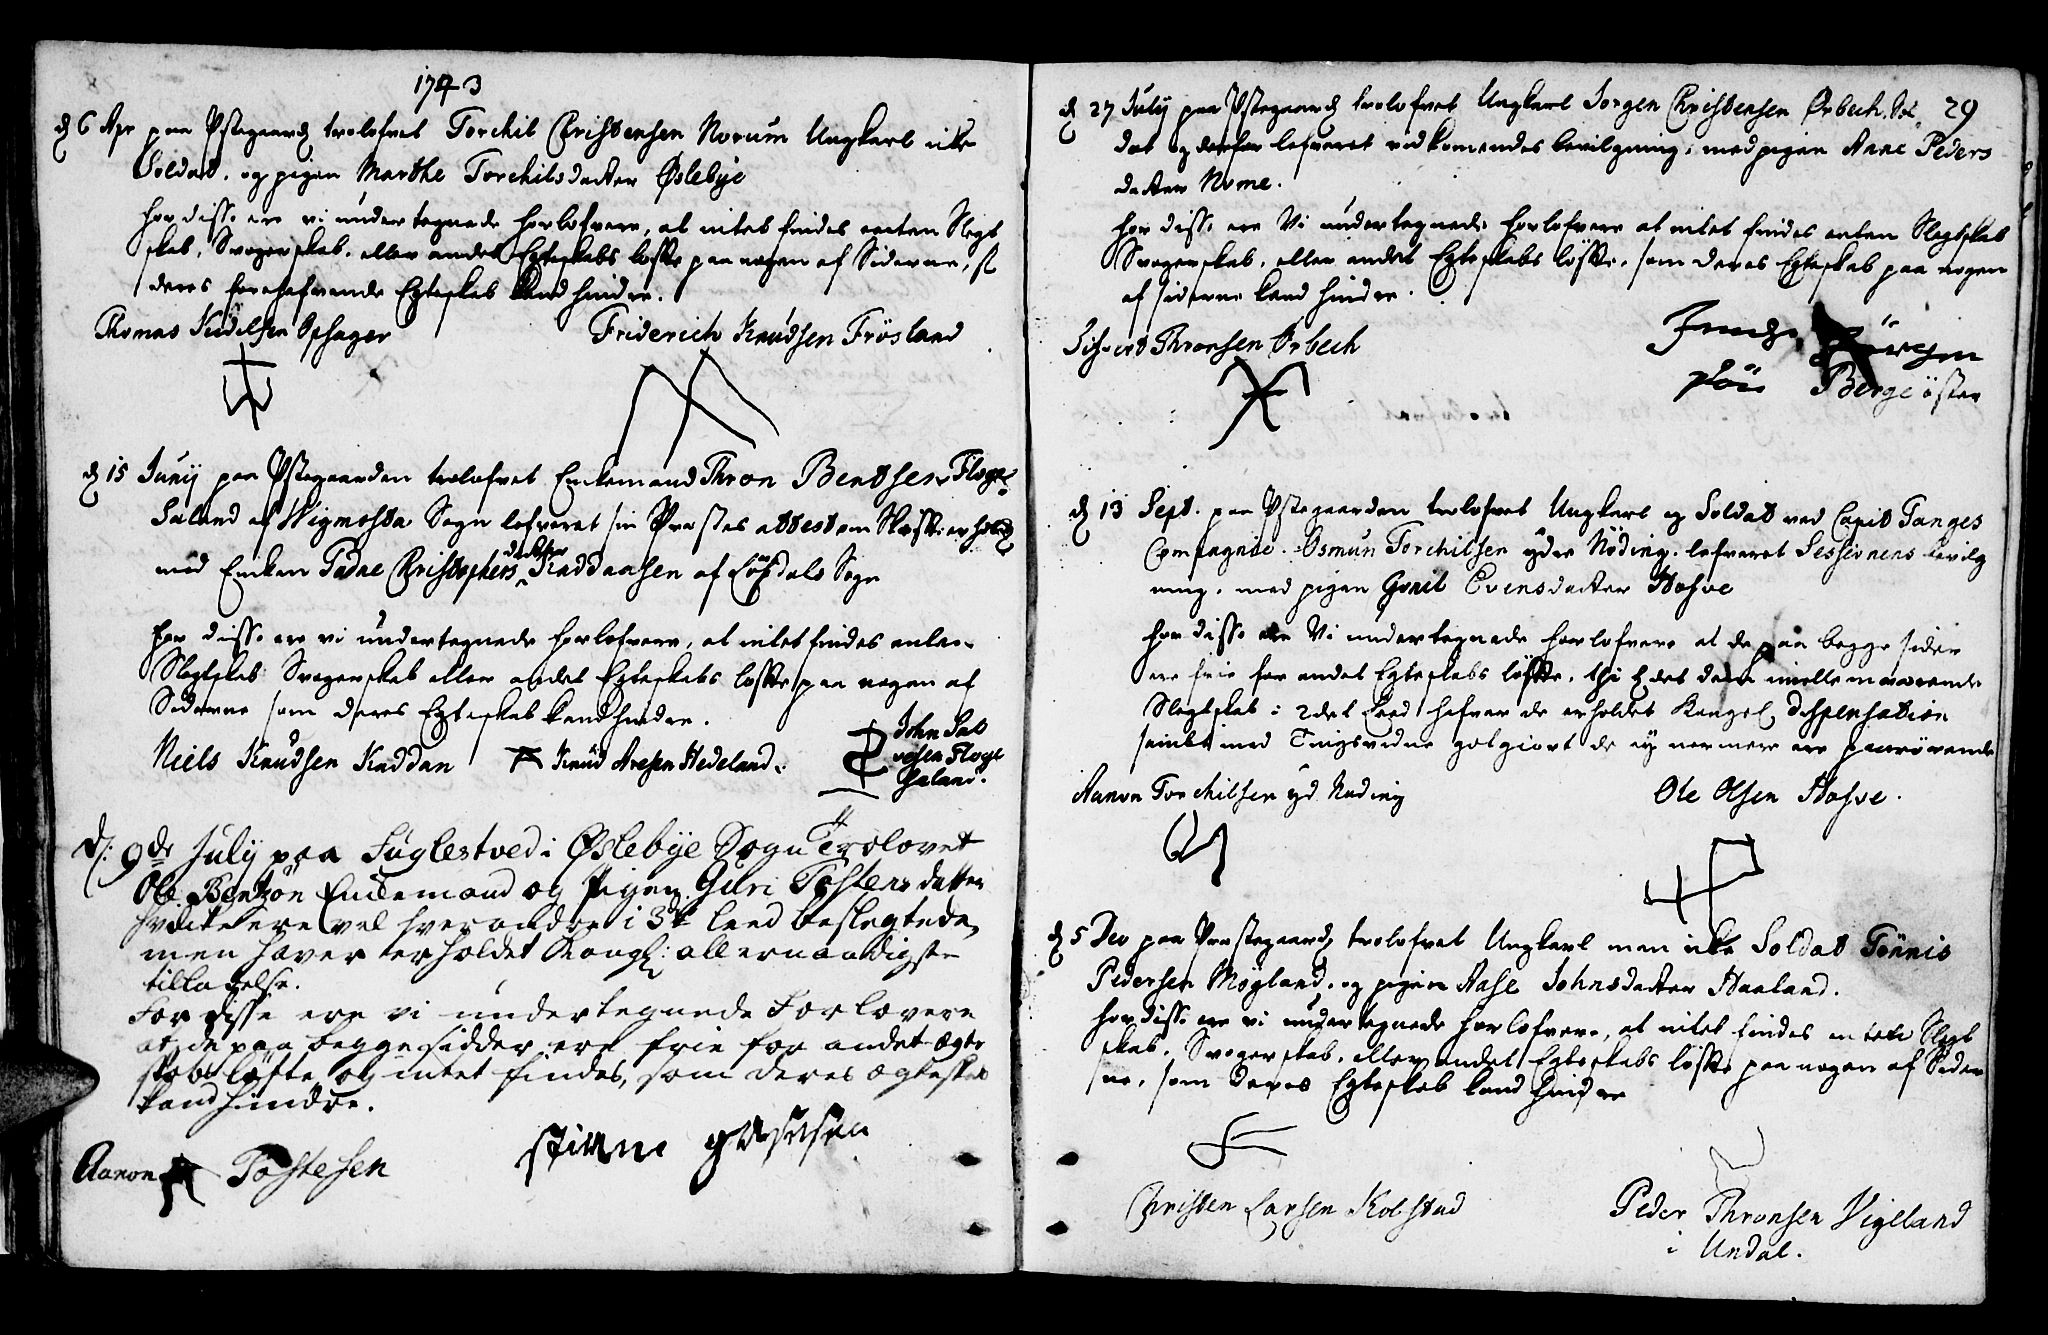 1743
d 6 Apr paa Præstegaard trolofvet Torchil Christensen Norum Ungkarl icke
Soldat. og pigen Marthe Torchilsdatter Øslebye
For disse ere vi undertegnede Forlofvere, at intet findes enten Slegt
skab, Svogerskab, eller andet Egteskabs løfte paa nogen af Siderne,
deres forehafvende Egteskab kand hindre.
Thomas
Friderich Knudsen Frösland
d 15 Junij paa Præstegaarden trolofvet Enkemand Thron Bentsen Floge
land af Wigmosta Sogn lefveret sin Præstes attest om
med Enken Christophersdatter Kaddansen af Sogn
For disse ere vi undertegnede Forlofvere, at intet findes enten
Slegtskab Svogerskab eller andet Egteskabs løfte paa nogen af
Siderne som deres Egteskab kand hindre.
Niels Knudsen Kaddan
Knud Aresen Hedeland.
John Sal
vesen Floge
haland.
d: 9de July paa Fuglestved i Øslebye Sogn Trolovet
Ole Bentzøn Enckemand og Pigen Guri Tostensdatter
hvilke ere vel hverandre i 3de leed beslegtede,
men haver erholdet Kongl: allernaadigste
tilladelse.
For disse ere vi undertegnede Forlovere
at de paa begge sidder ere frie for andet ægte
skabs løfte og intet findes, som deres ægteskab
kand hindre.
Aanon Tostesen
29
d 27 July paa Præstegaard trolofvet Ungkarl Jorgen Christensen Ørbech, Sol
dat og derfor lefveret vedkomendes bevilgning, med pigen Anne Peders
datter Nome.
For disse ere Vi undertegnede Forlofvere at intet findes enten Slegtskab
Svogerskab, eller andet Egteskabs løfte, som deres Egteskab paa nogen
af siderne kand hindre.
Sifvert Thronsen Ørbech
Jörgen
Berge öster
d 13 Sept. paa Præstegaarden trolofvet Ungkarl og Soldat ved Capit Tanges
Compagnie. Osmun Torchilsen ydre Nöding. lefveret Sessionens bevilg
ning, med pigen Gunil Evensdatter Hasve
For disse ere Vi undertegnede Forlofvere at de paa begge sider
ere frie for andet Egteskabs løfte, thi det dem imellem værende
Slegtskab i 2det Leed hafver de erholdet Kongel dispensation
samt med Tingsvidne gotgiort de ey nermere ere paarørende
Aanon Torchilsen yd Nöding
Ole Olsen Hasve.
d 5 Dec paa Præstegaard trolofvet Ungkarl men icke Soldat Tönnis
Pedersen Møgland, og pigen Aase Johnsdatter Haaland.
For disse ere vi undertegnede Forlofvere, at intet findes enten Slegt
skab, Svogerskab, eller andet Egteskabs løfte paa nogen af Sider
ne, som deres Egteskab kand hindre
Christen Larsen Kolstad
Peder Thronsen Vigeland
i Undal.